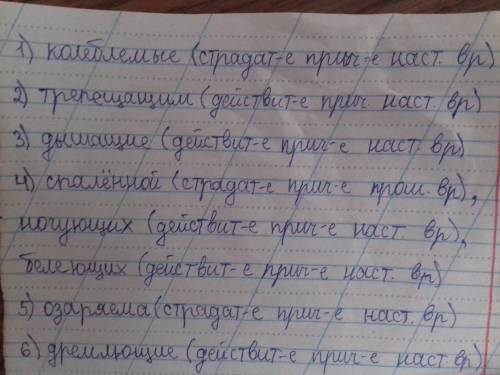 1) колеблемые (страдат-е прич-е наст. вр)
2) трепещащим (действит-е прич. наст. вр)
3) дымащие (действит-е прич-е наст. вр)
4) спалённой (страдат-е прич-е прош. вр),
ночующих (действит-е прич-е наст. вр),
белеющих (действит-е прич-е наст. вр)
5) озаряема (страдат-е прич-е наст. вр)
6) дремлющие (действит-е прич-е наст вр)